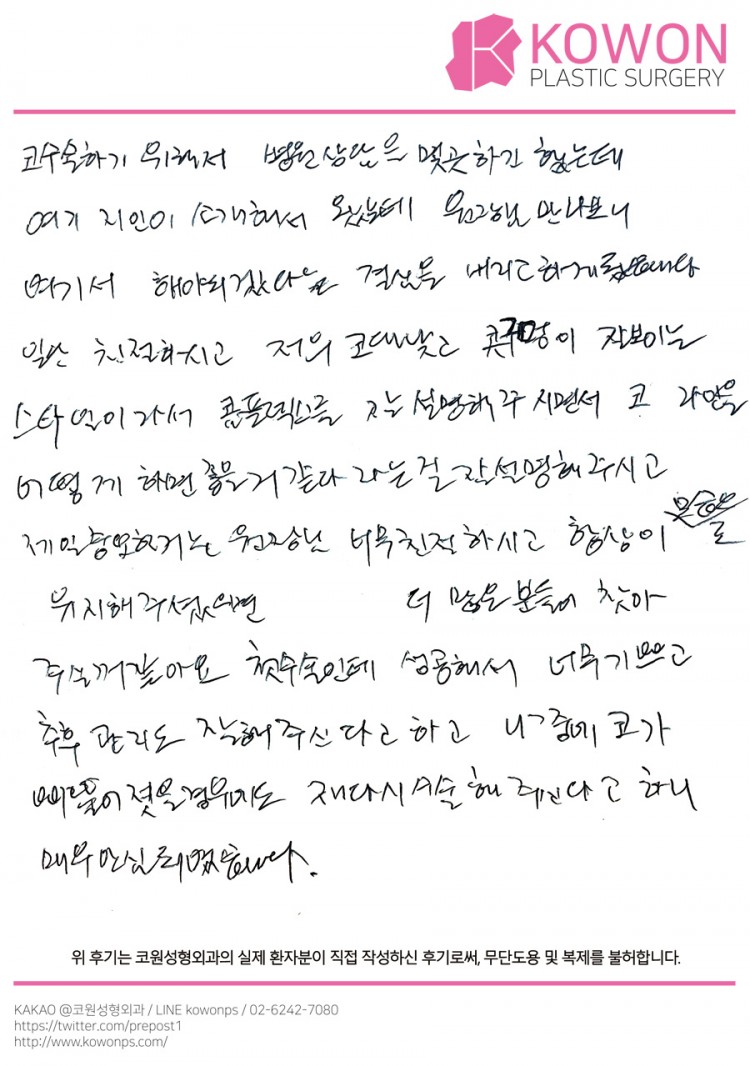 KOWON
PLASTIC SURGERY
코수술하기 위해서 병원상담을 몇곳하긴 했는데
여기 지인이 소개해서 왔는데 원장님 만나보니
여기서 해야되겠다는 결심을 내리고하게되었습니다
일단 친절하시고 저의 코대낮고 콧구멍이 잘보이는
스타일이라서 콤플렉스를 설명해주시면서 코 라인을
어떻게 하면 좋을거 같다 라는걸 잘설명해주시고
제일중요한거는 원장님 너무친절하시고 항상이 모습으로
유지해주셨으면 더 많은분들이 찾아
주실꺼같아요 첫수술인데 성공해서 너무기쁘고
추후 관리도 잘해주신다고하고 나중에 코가
삐뚤어졌을경우에도 재다시 수술해 주신다고 하니
매우안심되었습니다.
위 후기는 코원성형외과의 실제 환자분이 직접 작성하신 후기로써, 무단도용 및 복제를 불허합니다.
KAKAO @코원성형외과 / LINE kowonps / 02-6242-7080
https://twitter.com/prepost1
http://www.kowonps.com/